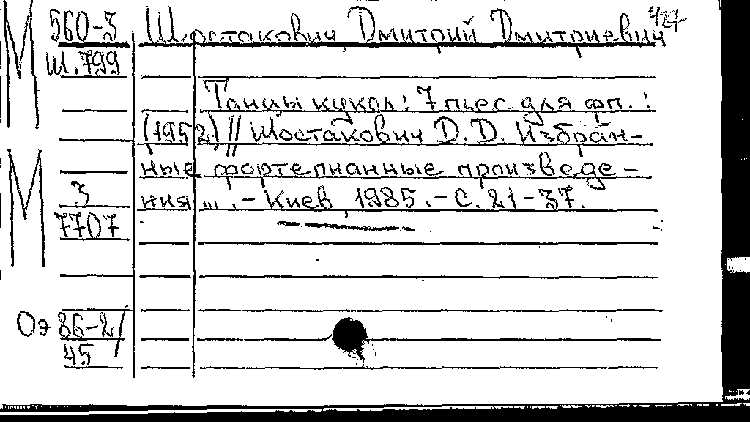 560-3 Шостакович, Дмитрий Дмитриевич
Ш.799
Танцы кукол: 7 пьес для фп. :
(1952) // Шостакович Д.Д. Избран-
ные фортепианные произведе-
ния ... .- Киев, 1985.- С. 21-37.
М
М
3
7707
Оэ 86-2/
45